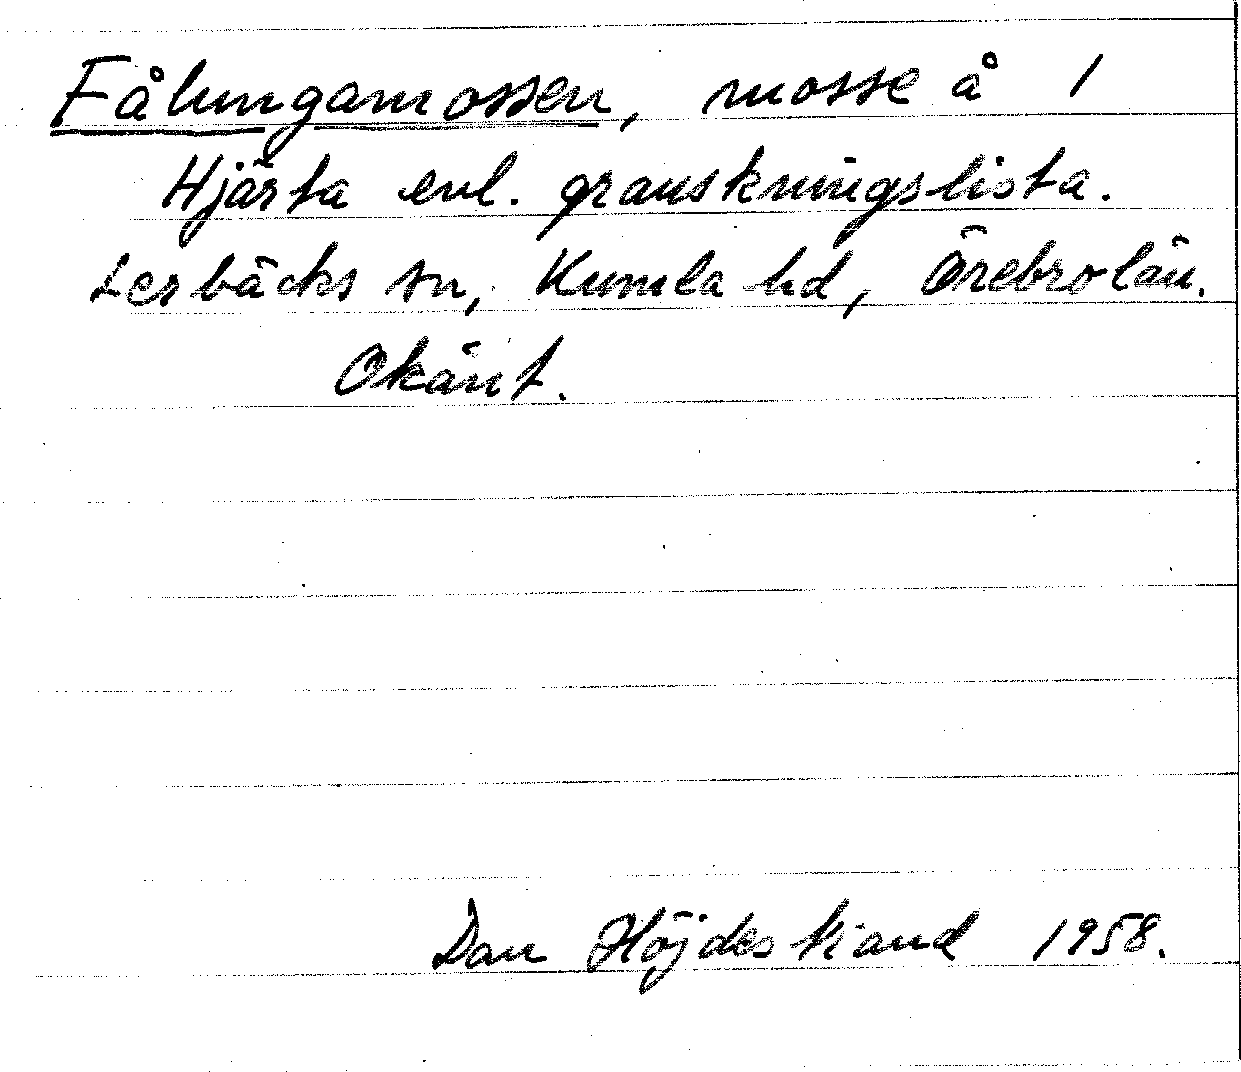 Fålungamossen, mosse å 1
Hjärta enl. granskningslista.
Lerbäcks sn, Kumla hd, Örebro län.
Okänt.
Dan Höjdestrand 1958.